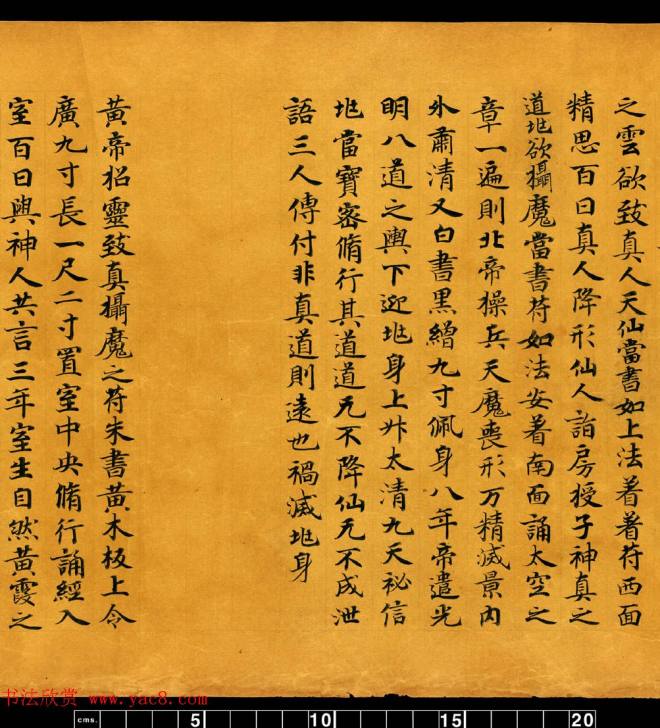 之雲欲致真人天仙當書如上法着著苻西面
精思百日真人降形仙人詣房授子神真之
道地欲攝魔當書苻如法安着南面誦太空之
章一遍則北帝操兵天魔喪形万精滅景内
外肅清又白書黑繒九寸佩身八年帝遣光
明八道之輿下迎地身上升太清九天祕信
地當寶密脩行其道道无不降仙无不成泄
語三人傳付非真道則遠也禍滅地身
黃帝招靈致真攝魔之苻朱書黃木板上令
廣九寸長一尺二寸置室中央脩行誦經入
室百日與神人共言三年室生自然黃霞之
书法欣赏 www.yac8.com
cms. 5 10 15 20